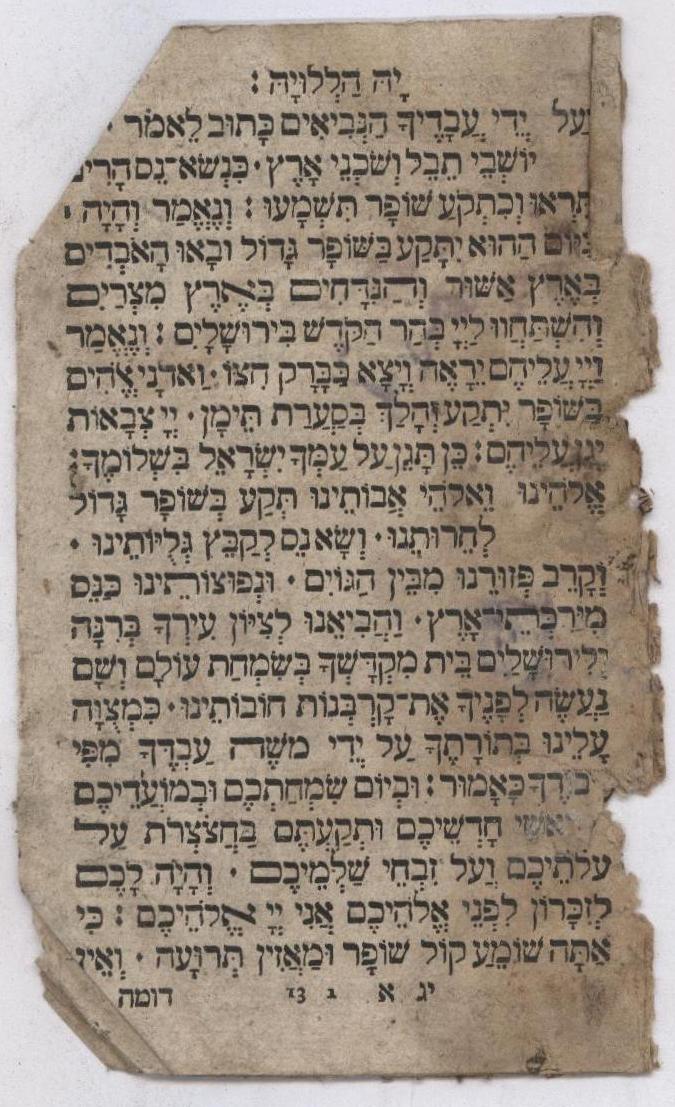 יָהּ הַלְלוּיָהּ :
וְעַל יְדֵי עֲבָדֶיךָ הַנְּבִיאִים כָּתוּב לֵאמֹר ·
יוֹשְׁבֵי תֵבֵל וְשֹׁכְנֵי אָרֶץ · כִּנְשֹׂא־נֵס הָרִים
תִּרְאוּ וְכִתְקֹעַ שׁוֹפָר תִּשְׁמָעוּ : וְנֶאֱמַר וְהָיָה
בַּיּוֹם הַהוּא יִתָּקַע בַּשּׁוֹפָר גָּדוֹל וּבָאוּ הָאֹבְדִים
בְּאֶרֶץ אַשּׁוּר וְהַנִּדָּחִים בְּאֶרֶץ מִצְרַיִם
וְהִשְׁתַּחֲווּ לַיְיָ בְּהַר הַקֹּדֶשׁ בִּירוּשָׁלָיִם : וְנֶאֱמַר
וַיְיָ עֲלֵיהֶם יֵרָאֶה וְיָצָא כַבָּרָק חִצּוֹ · וַאדֹנָי אֱלֹהִים
בַּשּׁוֹפָר יִתְקַע וְהָלַךְ בְּסַעֲרַת תֵּימָן · יְיָ צְבָאוֹת
יָגֵן עֲלֵיהֶם : כֵּן תָּגֵן עַל עַמְּךָ יִשְׂרָאֵל בִּשְׁלוֹמֶךָ :
אֱלֹהֵינוּ וֵאלֹהֵי אֲבוֹתֵינוּ תְּקַע בְּשׁוֹפָר גָּדוֹל
לְחֵרוּתֵנוּ · וְשָׂא נֵס לְקַבֵּץ גָּלֻיּוֹתֵינוּ ·
וְקָרֵב פְּזוּרֵנוּ מִבֵּין הַגּוֹיִם · וּנְפוּצוֹתֵינוּ כַּנֵּס
מִיַּרְכְּתֵי־אָרֶץ · וַהֲבִיאֵנוּ לְצִיּוֹן עִירְךָ בְּרִנָּה
וְלִירוּשָׁלַיִם בֵּית מִקְדָּשְׁךָ בְּשִׂמְחַת עוֹלָם וְשָׁם
נַעֲשֶׂה לְפָנֶיךָ אֶת־קָרְבְּנוֹת חוֹבוֹתֵינוּ · כִּמְצֻוָּה
עָלֵינוּ בְּתוֹרָתֶךָ עַל יְדֵי מֹשֶׁה עַבְדֶּךָ מִפִּי
כְבוֹדֶךָ כָּאָמוּר : וּבְיוֹם שִׂמְחַתְכֶם וּבְמוֹעֲדֵיכֶם
וּבְרָאשֵׁי חָדְשֵׁיכֶם וּתְקַעְתֶּם בַּחֲצֹצְרֹת עַל
עֹלֹתֵיכֶם וְעַל זִבְחֵי שַׁלְמֵיכֶם · וְהָיָה לָכֶם
לְזִכָּרוֹן לִפְנֵי אֱלֹהֵיכֶם אֲנִי יְיָ אֱלֹהֵיכֶם : כִּי
אַתָּה שׁוֹמֵעַ קוֹל שׁוֹפָר וּמַאֲזִין תְּרוּעָה · וְאֵין
יג א 1 13 דומה